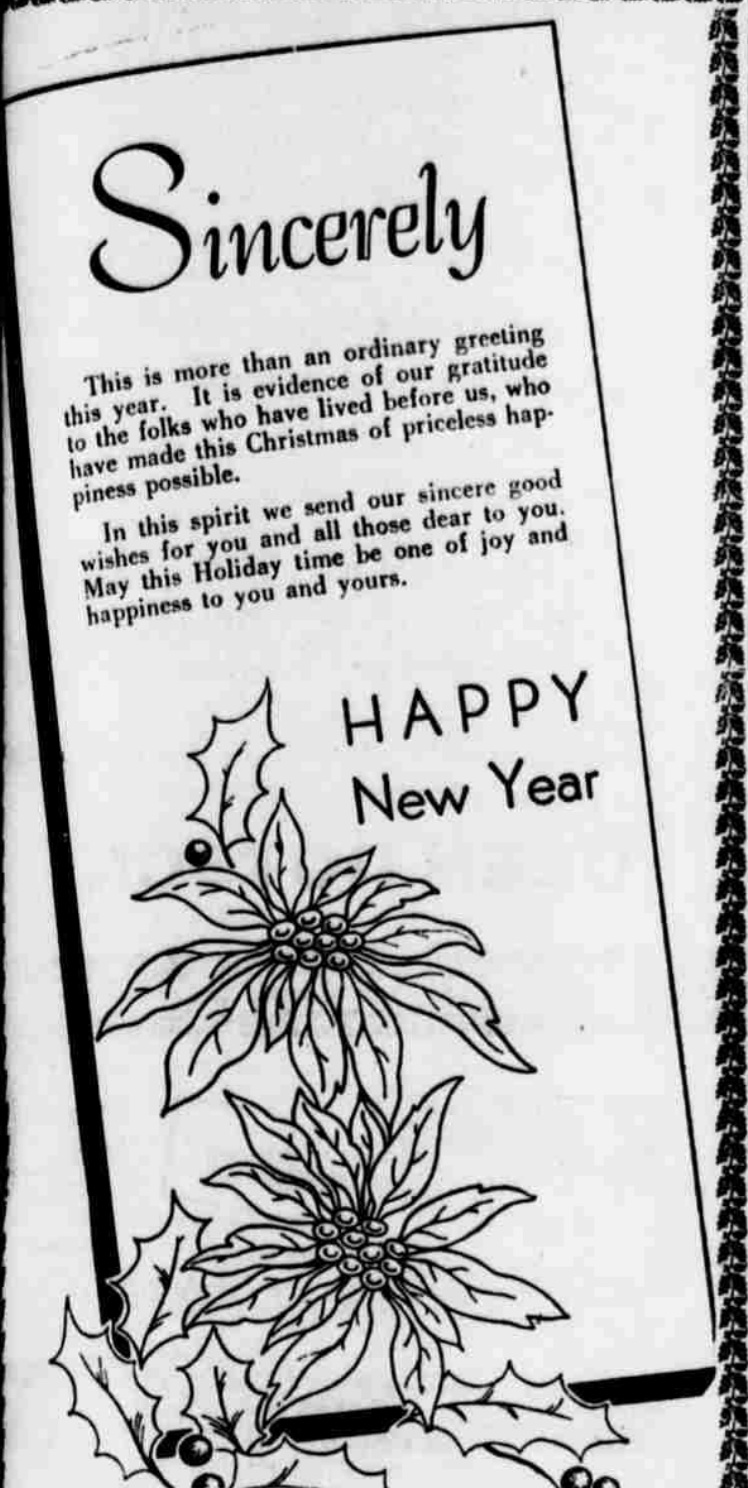 Sincerely
This is more than an ordinary greeting
this year. It is evidence of our gratitude
to the folks who have lived before us, who
have made this Christmas of priceless hap-
piness possible.
In this spirit we send our sincere good
wishes for you and all those dear to you.
May this Holiday time be one of joy and
happiness to you and yours.
HAPPY
New Year